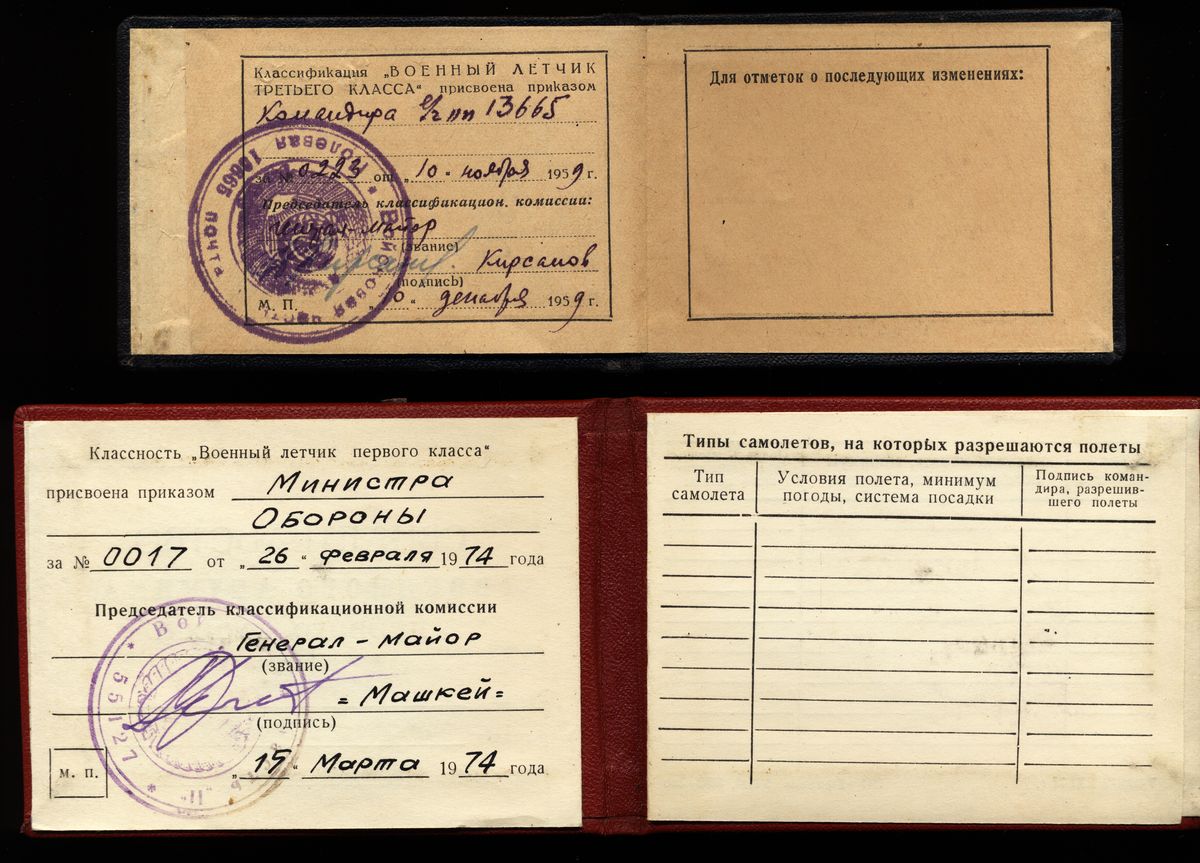 Классификация „ВОЕННЫЙ ЛЕТЧИК
ТРЕТЬЕГО КЛАССА“ присвоена приказом
Командира в/ч пп 13665
за № 0223 от „10“ ноября 1959 г.
Председатель классификацион. комиссии:
майор
(звание)
Кирсанов
(подпись)
М. П. „10“ декабря 1959 г.
* Войсковая часть * полевая почта 13665
Для отметок о последующих изменениях:
Классность „Военный летчик первого класса“
присвоена приказом Министра
Обороны
за № 0017 от „26“ февраля 1974 года
Председатель классификационной комиссии
Генерал-майор
(звание)
=Машкей=
(подпись)
м. п. „15“ Марта 1974 года
* 55127 *
Типы самолетов, на которых разрешаются полеты
Тип
самолета
Условия полета, минимум
погоды, система посадки
Подпись коман-
дира, разрешив-
шего полеты